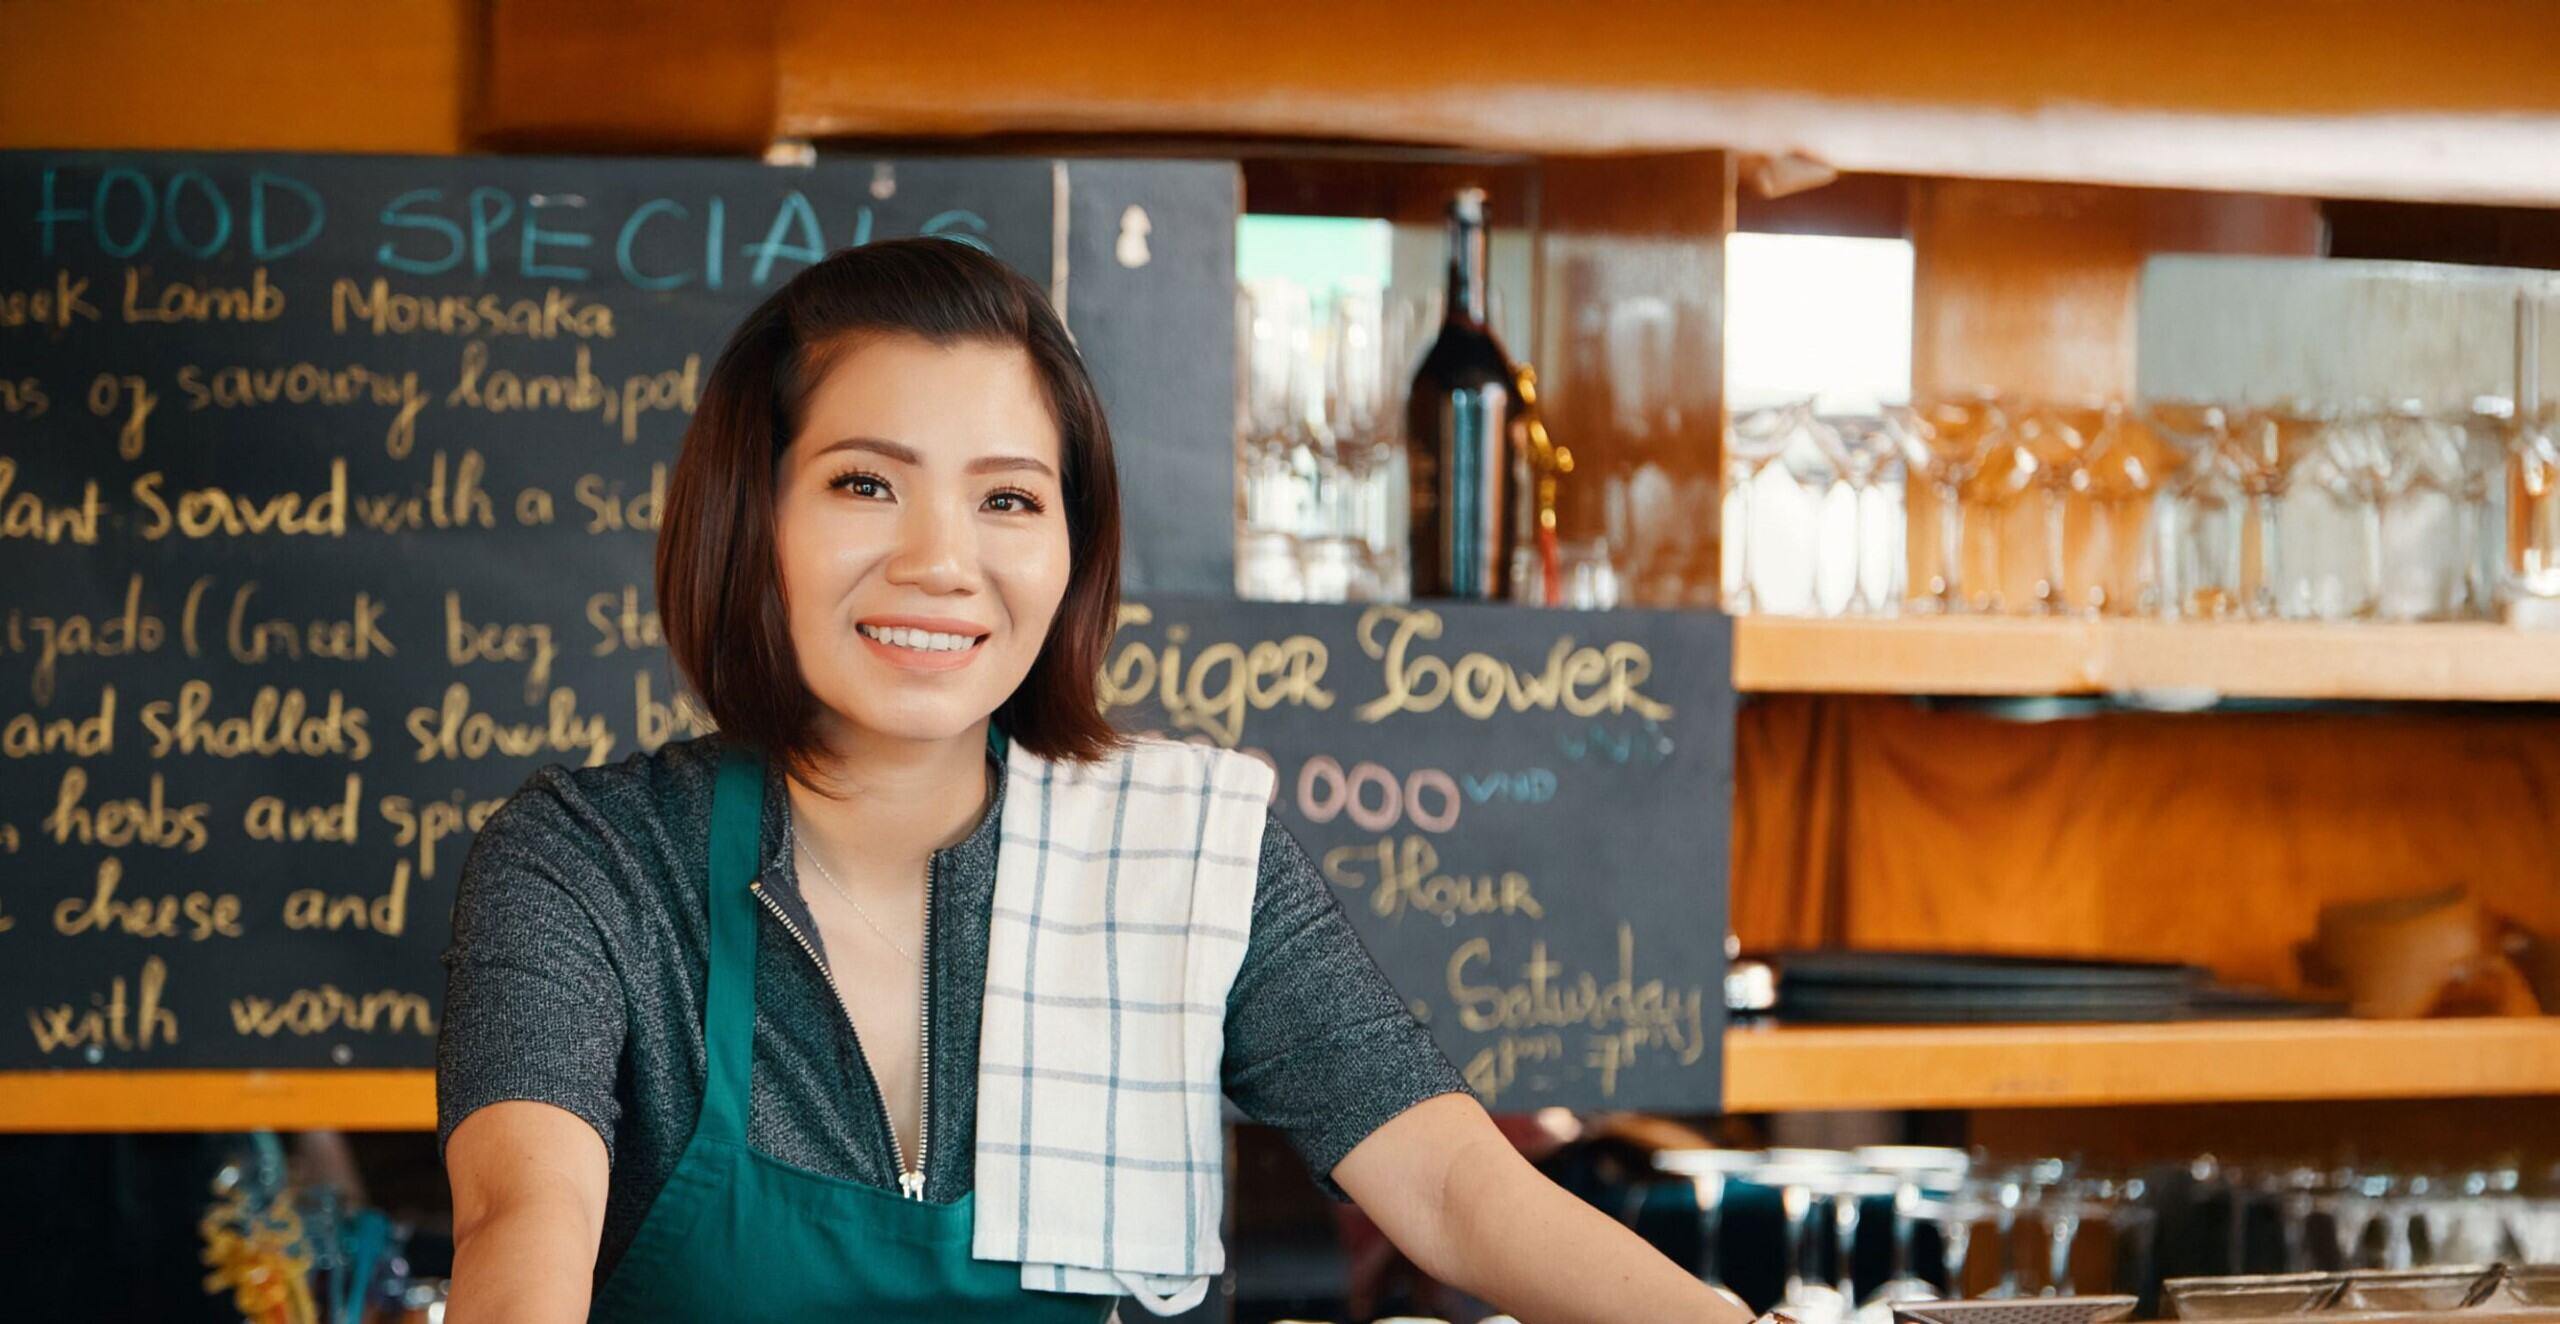 FOOD SPECIALS
Lamb Moussaka
of savoury lamb, pot
Served with a sid
(Greek beef Ste
and shallots slowly
herbs and spic
cheese and
with warm
Tiger Tower
VND
000 VND
Hour
Saturday
4pm - 7pm